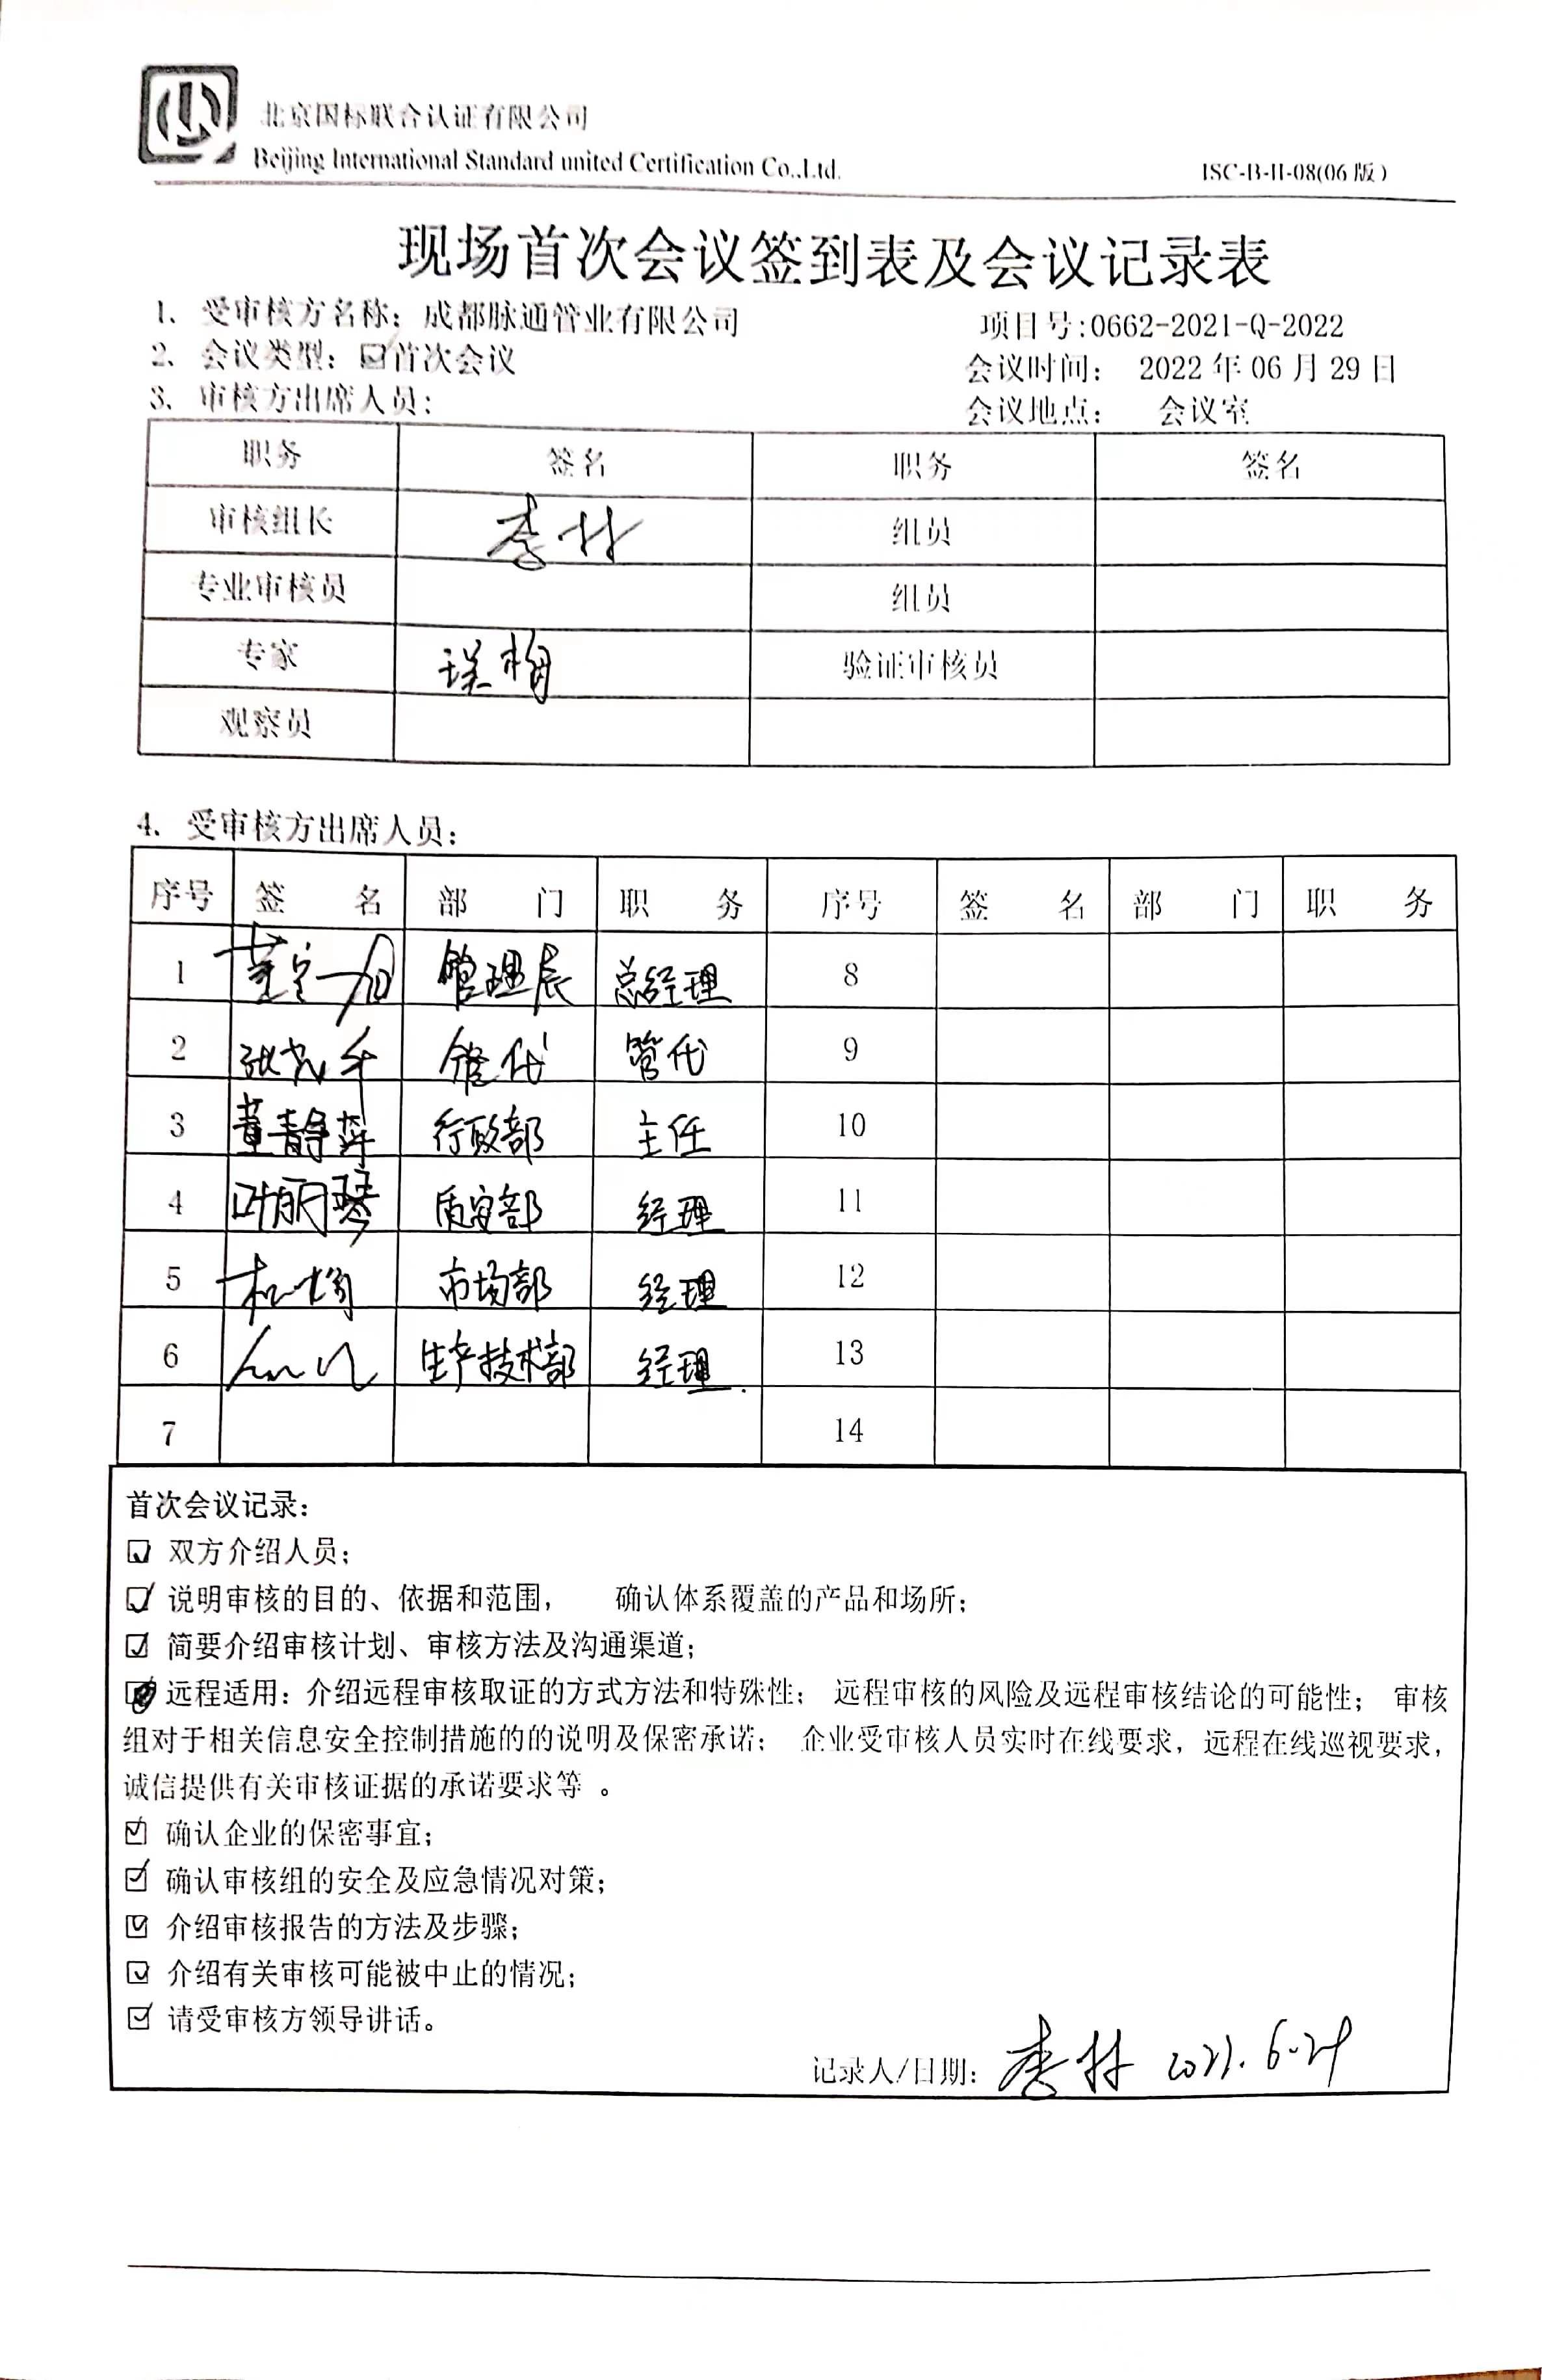 北京国标联合认证有限公司
Beijing International Standard united Certification Co.,Ltd.
ISC-B-II-08(06版)
现场首次会议签到表及会议记录表
1. 受审核方名称：成都脉通管业有限公司 项目号:0662-2021-Q-2022
2. 会议类型：☑首次会议 会议时间： 2022年06月29日
3. 审核方出席人员： 会议地点： 会议室
职务 签名 职务 签名
审核组长 李林 组员
专业审核员 组员
专家 验证审核员
观察员
4. 受审核方出席人员：
序号 签 名 部 门 职 务 序号 签 名 部 门 职 务
1 管理层 总经理 8
2 管代 管代 9
3 董静萍 行政部 主任 10
4 叶丽琴 质安部 经理 11
5 市场部 经理 12
6 生产技术部 经理 13
7 14
首次会议记录：
☑ 双方介绍人员；
☑ 说明审核的目的、依据和范围， 确认体系覆盖的产品和场所；
☑ 简要介绍审核计划、审核方法及沟通渠道；
远程适用：介绍远程审核取证的方式方法和特殊性； 远程审核的风险及远程审核结论的可能性； 审核
组对于相关信息安全控制措施的的说明及保密承诺； 企业受审核人员实时在线要求，远程在线巡视要求，
诚信提供有关审核证据的承诺要求等 。
☑ 确认企业的保密事宜；
☑ 确认审核组的安全及应急情况对策；
☑ 介绍审核报告的方法及步骤；
☑ 介绍有关审核可能被中止的情况；
☑ 请受审核方领导讲话。
记录人/日期： 李林 2022.6.29